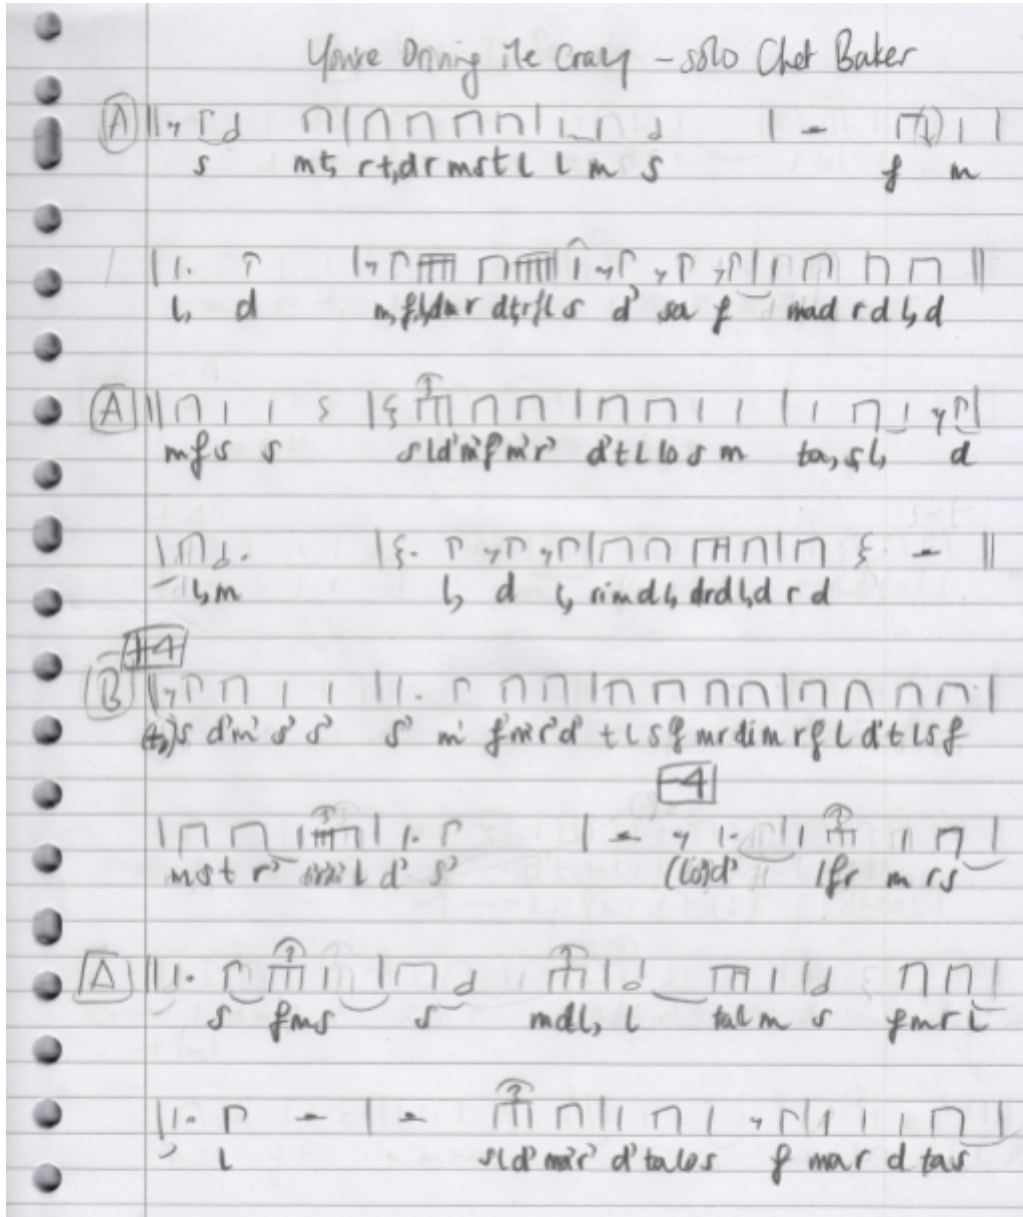 You're Driving Me Crazy - solo Chet Baker
A
s mt, rt,drmstl l m s f m
l, d m,f,l,dmr dt,rfls d' sa f mad rdl,d
A
mfs s sld'm'f'm'r' d'tllosm ta,s,l, d
l,m l, d l, rimdl, drdl,d r d
+4
B
(t,)s d'm' s' s' s' m' f'm'r'd' tlsf mrdim rfl d'tlsf
-4
mst r' l d' s' (lo)d' lfr m rs
A
s fms s mdl, l talm s fmrl
l sld' ma'r' d'talos f mar d tas